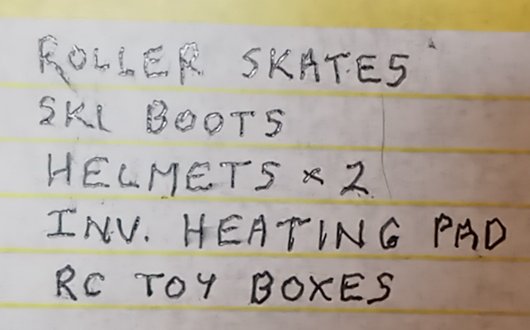 ROLLER SKATES
SKI BOOTS
HELMETS x 2
INV. HEATING PAD
RC TOY BOXES